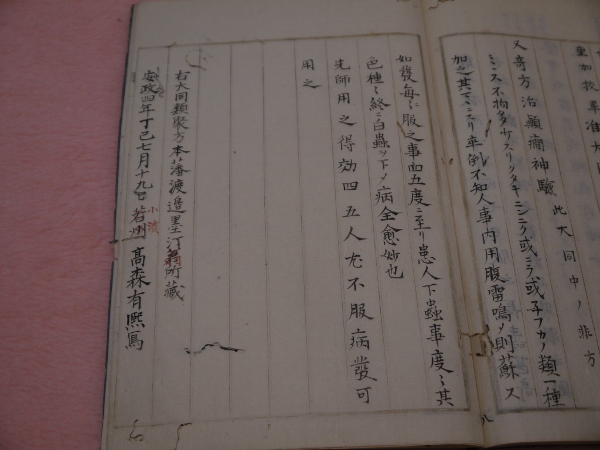 里加牧準大
此大同中ノ非方
又奇方治癲癇神驗
ミミズ不拘多少スリクタキニンニク或ニラ或子フカノ類一種
加之其下ニスリ卒倒不知人事内用腹雷鳴メ則蘇ス
如發每ニ服之事四五度ニ至リ患人下蟲事度ミ其
色種ミ終ニ白蟲ヲ下メ病全愈妙也
先師用之得効四五人尤不服病發可
用之
右大同類聚方本藩渡邉墨汀翁所藏
安政四年丁巳七月十九日若州小濱高森有熙寫
八